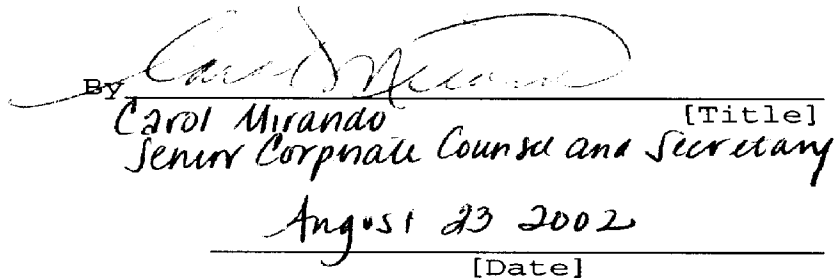 By Carol Mirando
[Title]
Carol Mirando
Senior Corporate Counsel and Secretary
August 23 2002
[Date]